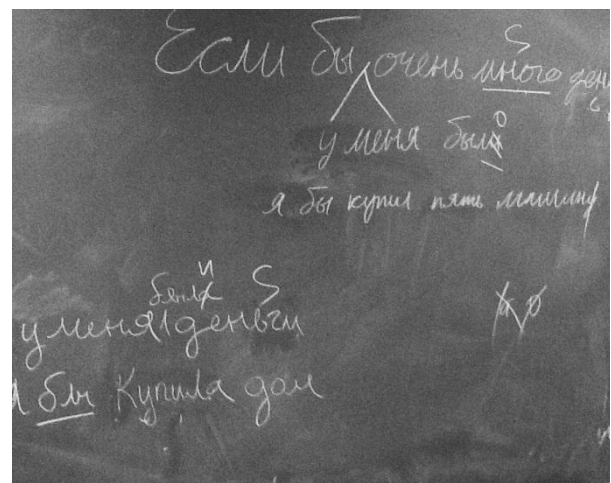 Если бы очень много ден
у меня было
я бы купил пять машин
были
у меня деньги
бы купила дом